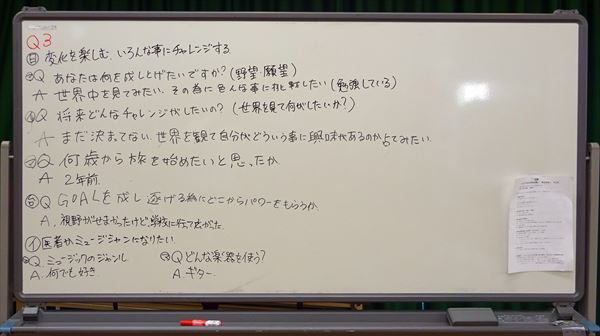 Q3
変化を楽しむ、いろんな事にチャレンジする
Q あなたは何を成しとげたいですか?(野望・願望)
A 世界中を見てみたい、その為に色んな事に挑戦したい(勉強している)
Q 将来どんなチャレンジがしたいの?(世界を見て何がしたいか?)
A まだ決まってない、世界を観て自分がどういう事に興味があるのか占てみたい.
Q 何歳から旅を始めたいと思ったか
A 2年前.
Q GOALを成し遂げる為にどこからパワーをもらうか
A. 視野がせまかったけど、学校に行って広がった.
①医者かミュージシャンになりたい.
Q ミュージックのジャンル Qどんな楽器を使う?
A. 何でも好き. A. ギター.